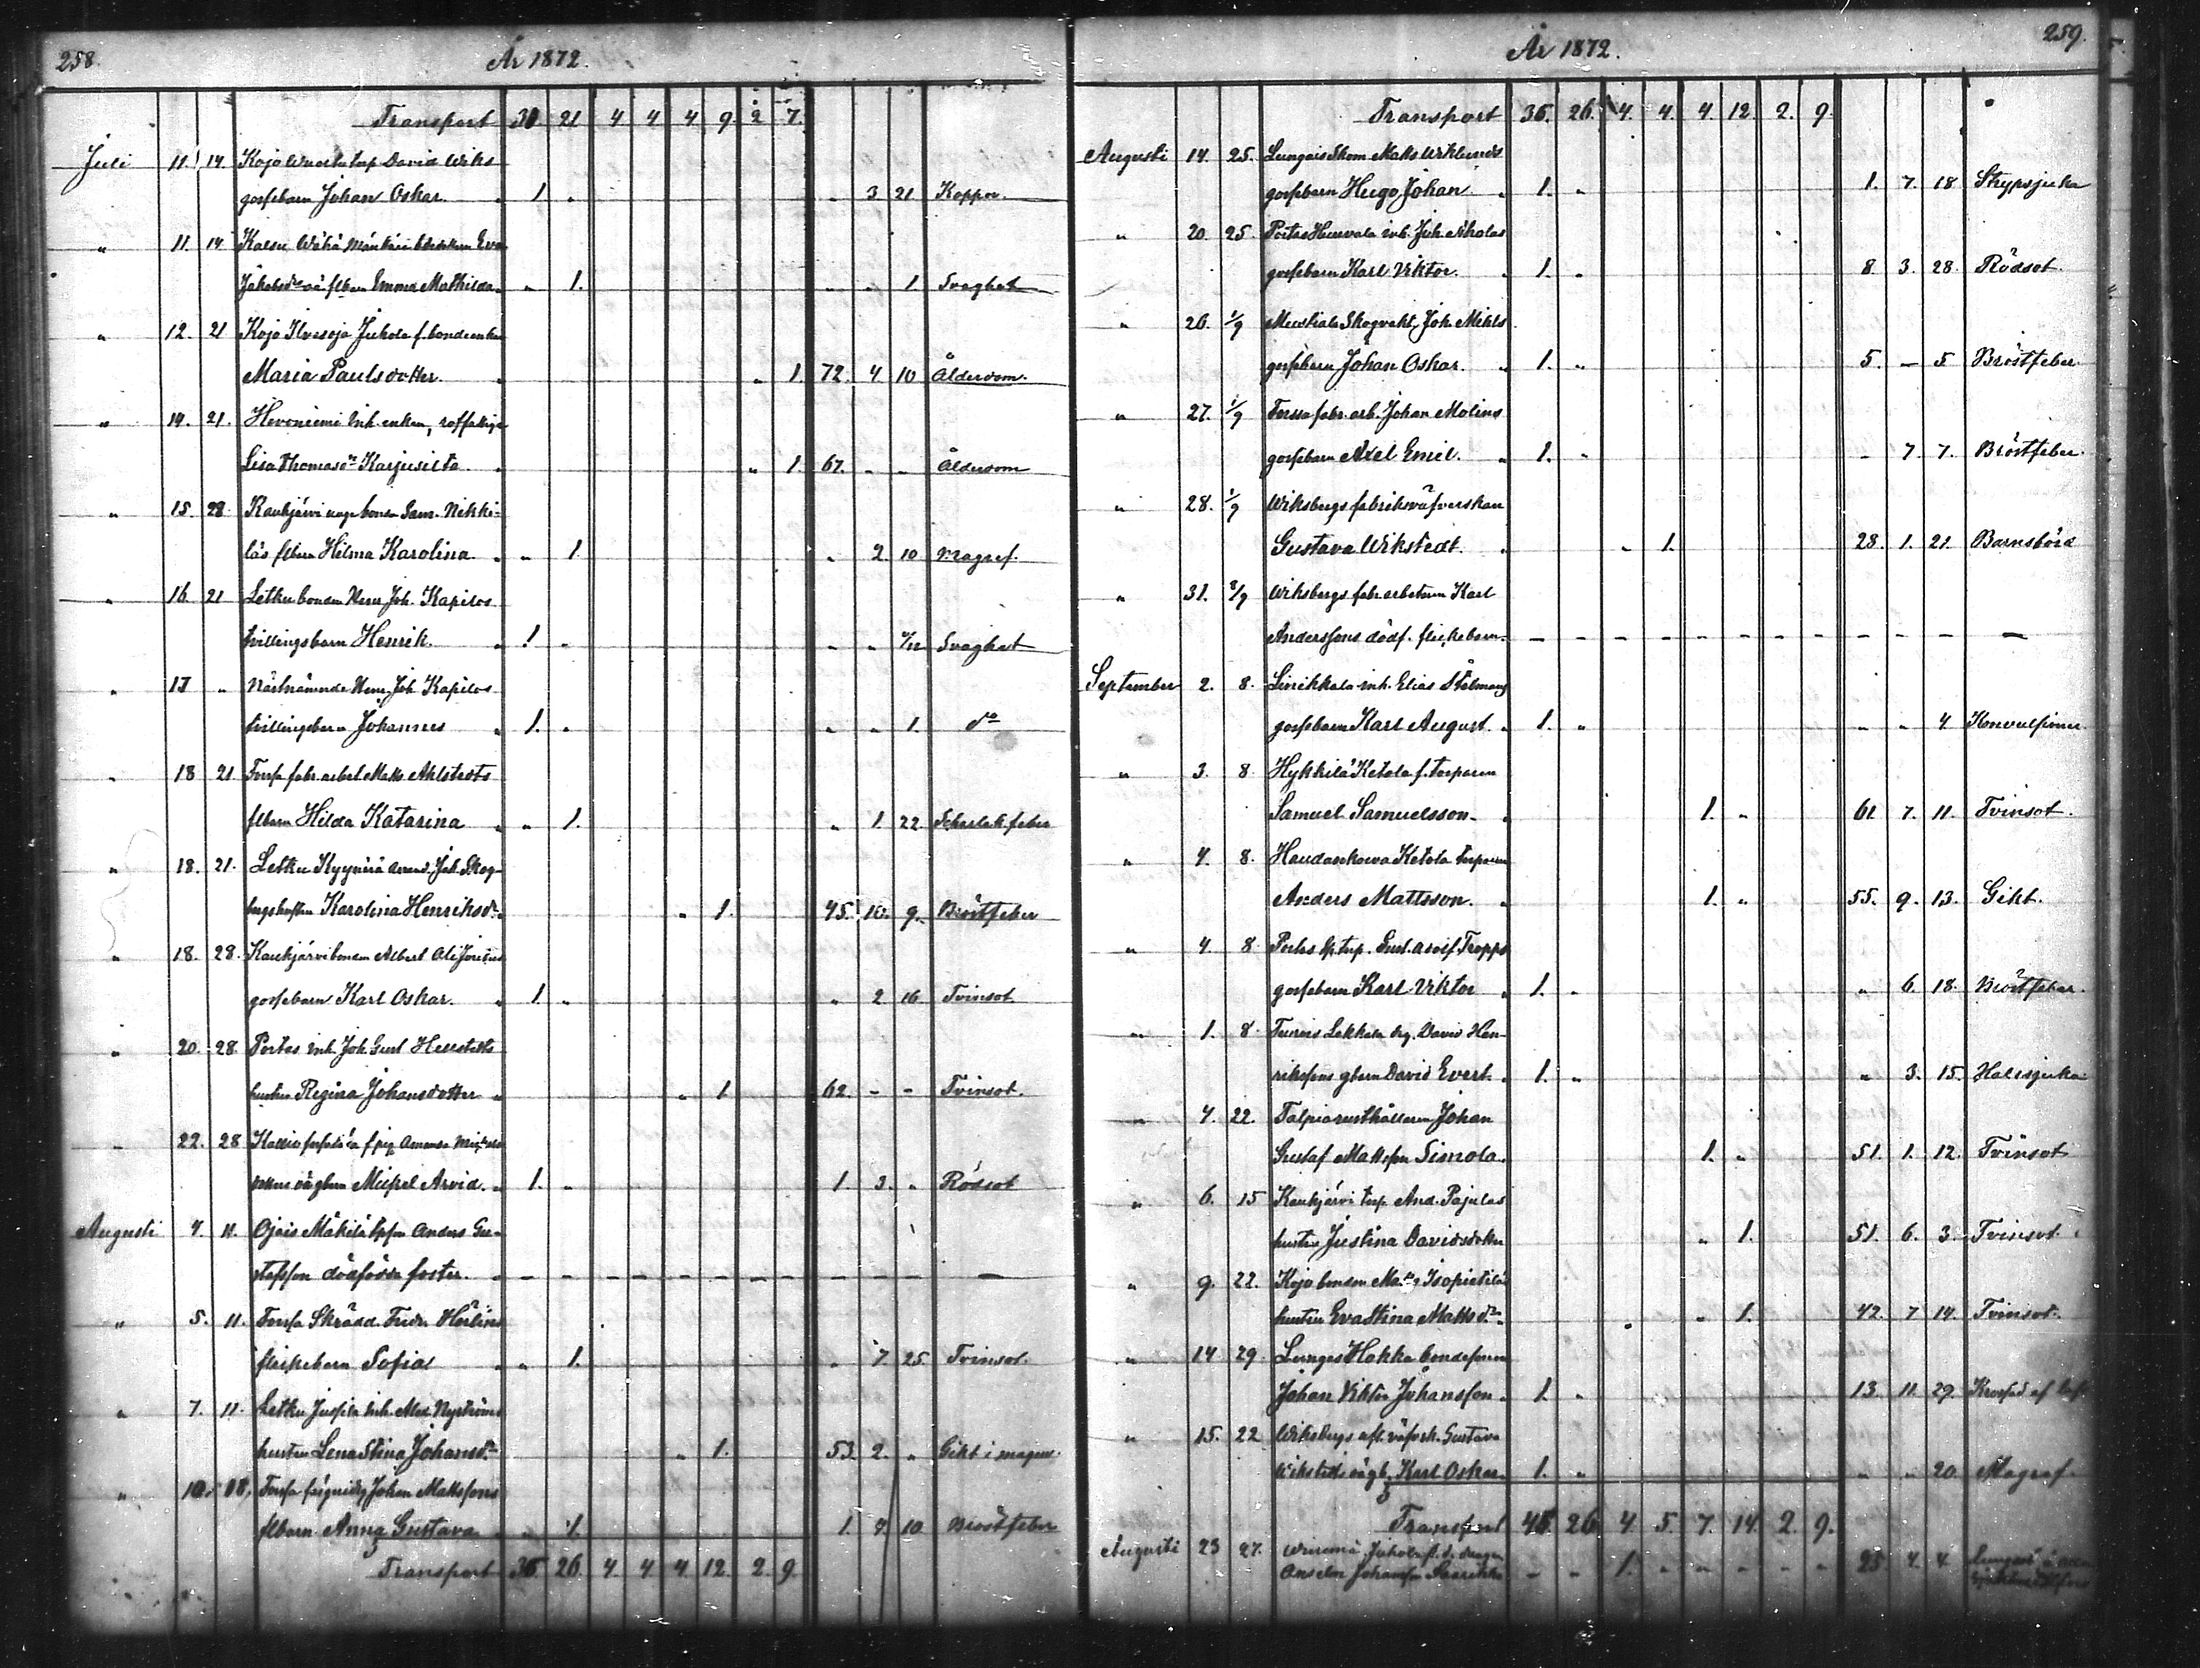 258.
År 1872.
Transport 30. 21 4 4 4 9. 2 7.
Juli 11. 14. Kojo torp David Wiks
gossebarn Johan Oskar. 1 " " 3 21 Koppor.
" 11. 14. Kalsu Wähä Eva
Jakobsdr oä flbarn Emma Mathilda " 1. " " 1. Svaghet
" 12. 21 Kojo Ilvesoja Jukola f. bondeenkan
Maria Paulsdotter. " 1. 72. 4 10 Ålderdom.
" 14. 21. Hevoniemi inh. enkan,
Lisa Thomasdr Karjusilta " 1. 67. " " Ålderdom
" 15. 28. Kaukjärvi unge bonden Sam. Nikki-
läs flbarn Hilma Karolina " 1. " 2 10 Magref
" 16. 21 Letku bonden Herm. Joh. Kapilos
tvillingsbarn Henrik. 1. " " " Svaghet
" 17 " Näst nämnde Herm. Joh. Kapilos
tvillingsbarn Johannes 1. " " " 1. do
" 18 21 Forssa fabr. arbet. Matts Ahlstedts
flbarn Hilda Katarina " 1. " 1. 22 Scharlak. feber
" 18. 21. Letku Kyynärä arrend. Joh. Skog-
bergs hustru Karolina Henriksdr " 1. 45. 10. 9. Bröstfeber
" 18. 28. Kaukjärvi bonden Albert
gossebarn Karl Oskar. 1 " " 2 16 Tvinsot
" 20. 28. Portas inh. Joh. Gust. Hellstedts
hustru Regina Johansdotter " 1 62. - - Tvinsot.
" 22. 28 Kallio pig. Amanda
oä gbarn Mickel Arvid. 1. " 1. 3. " Rödsot
Augusti 4. 11. Ojais Mäkilä Anders Gu-
stafsson dödfödda foster. - - - - - - - - - - - -
" 5. 11. Forssa Skrädd. Fredr. Hörlins
flickebarn Sofia " 1. " 7 25 Tvinsot.
" 7. 11. Letku Jussila inh. Nyströms
hustru Lena Stina Johansdr " 1. 53. 2. " Gikt i magen
" 10. 18. Forssa Johan Mattssons
flbarn Anna Gustava " 1. 1. 4 10 Bröstfeber
Transport 35 26 4 4 4 12. 2. 9.
259.
År 1872.
Transport 35. 26. 4. 4. 4. 12. 2. 9.
Augusti 14. 25. Lungais Skom. Matts Wiklunds
gossebarn Hugo Johan. 1. " 1. 7. 18 Strypsjuka
" 20. 25. Portas Hunnala inh. Joh. Nikolas
gossebarn Karl Viktor. 1. " 8 3. 28. Rödsot.
" 26. 1/9 Mustiala Skogvakt. Joh. Mikls
gossebarn Johan Oskar. 1. " 5. - 5 Bröstfeber
" 27. 1/9 Forssa fabr. arb. Johan Molins
gossebarn Axel Emil. 1. " - 7. 7. Bröstfeber.
" 28. 1/9 Wiksbergs fabriksväfverskan
Gustava Wikstedt. " 1. 28. 1. 21. Barnsbörd
" 31. 8/9 Wiksbergs fabr. arbetaren Karl
Anderssons dödf. flickebarn. - - - - - - - - - - - -
September 2. 8. Linikkala inh. Elias Stålmans
gossebarn Karl August. 1. " " " 4 Konvulsioner
" 3. 8 Hykkilä Ketola f. torparen
Samuel Samuelsson. 1. " 61. 7. 11. Tvinsot.
" 4. 8. Haudankorva Ketola torparen
Anders Mattsson. 1. " 55. 9. 13. Gikt.
" 4. 8 Portas torp. Gust. Adolf Tropps
gossebarn Karl Viktor 1. " " 6. 18. Bröstfeber.
" 1. 8 Turvis Lekkala drg. David Hen-
rikssons gbarn David Evert. 1. " " 3. 15. Halssjuka
" 4. 22. Talpia rusthållaren Johan
Gustaf Mattsson Simola. 1. " 51. 1. 12. Tvinsot
" 6. 15 Kaukjärvi torp. And. Pajulas
hustru Justina Davidsdotter " 1. 51. 6. 3. Tvinsot.
" 9. 22. Kojo bonden Matts Isopietiläs
hustru Eva Stina Mattsdr. " 1. 42. 7 14. Tvinsot.
" 14 29. Lunges Hakka bondesonen
Johan Viktor Johansson. 1. " 13. 11. 29. Krossad af
" 15. 22 Wiksbergs afl. väfversk. Gustava
Wikstedts oä gb. Karl Oskar. 1. " " " 20. Magref.
Transport 45 26 4. 5. 7. 14. 2. 9.
Augusti 23 27. Jukola drengen
Anselm Johansson - - 1. - - - - - 25 4. 4.